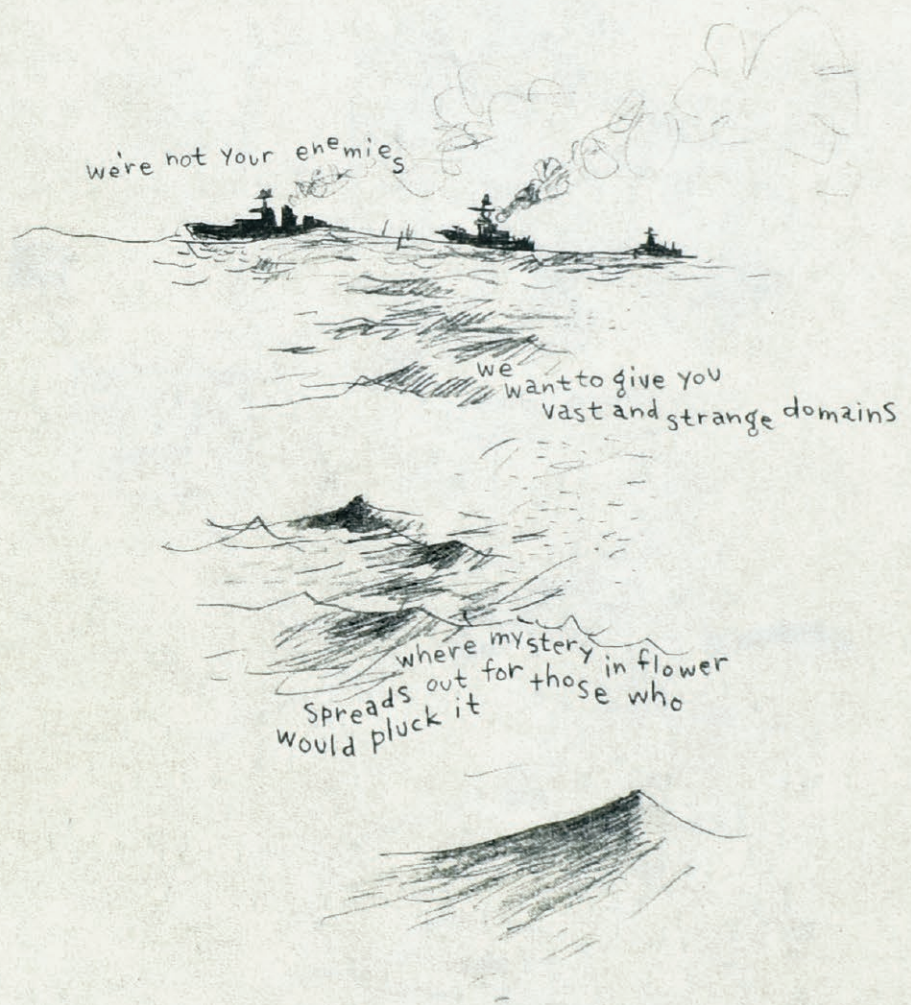 we're not your enemies
we
want to give you
vast and strange domains
where mystery in flower
Spreads out for those who
would pluck it